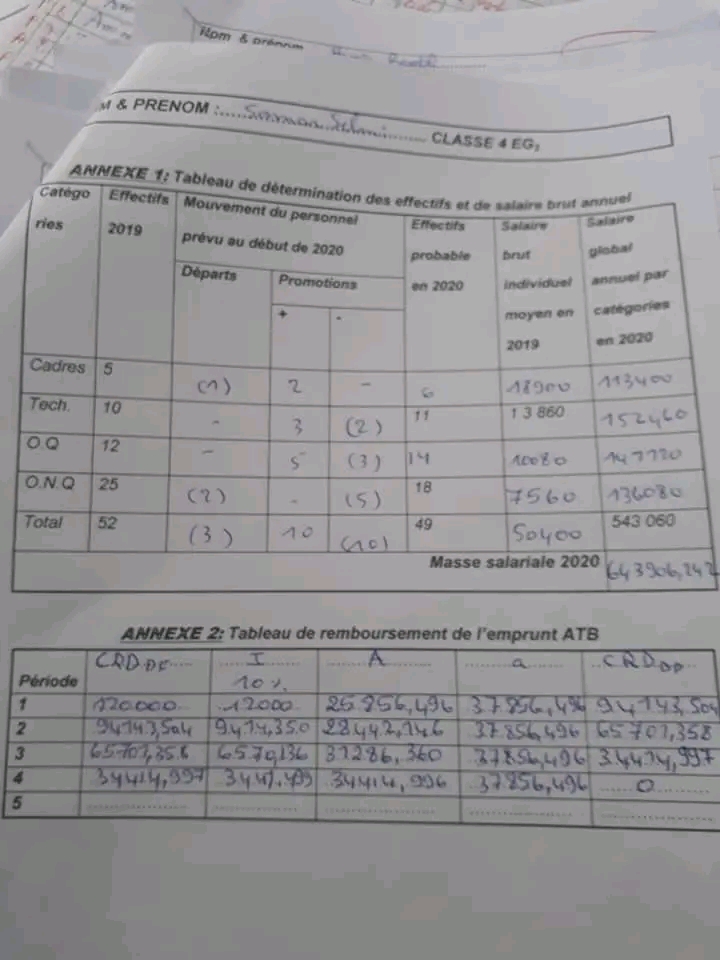 Nom & prénom
M & PRENOM :............ CLASSE 4 EG₃
ANNEXE 1: Tableau de détermination des effectifs et de salaire brut annuel
Catégo ries | Effectifs 2019 | Mouvement du personnel prévu au début de 2020 | Effectifs probable en 2020 | Salaire brut individuel moyen en 2019 | Salaire global annuel par catégories en 2020
Départs | Promotions
+ | -
Cadres | 5 | (1) | 2 | - | 6 | 18900 | 113400
Tech. | 10 | - | 3 | (2) | 11 | 13 860 | 152460
O.Q | 12 | - | 5 | (3) | 14 | 10080 | 141120
O.N.Q | 25 | (2) | - | (5) | 18 | 7560 | 136080
Total | 52 | (3) | 10 | (10) | 49 | 50400 | 543 060
Masse salariale 2020 | 643906,242
ANNEXE 2: Tableau de remboursement de l'emprunt ATB
Période | CRD DP | I 10% | A | a | CRD DP
1 | 120000 | 12000 | 25856,496 | 37856,496 | 94143,504
2 | 94143,504 | 9414,350 | 28442,146 | 37856,496 | 65701,358
3 | 65701,358 | 6570,136 | 31286,360 | 37856,496 | 34414,997
4 | 34414,997 | 3441,499 | 34414,996 | 37856,496 | 0
5